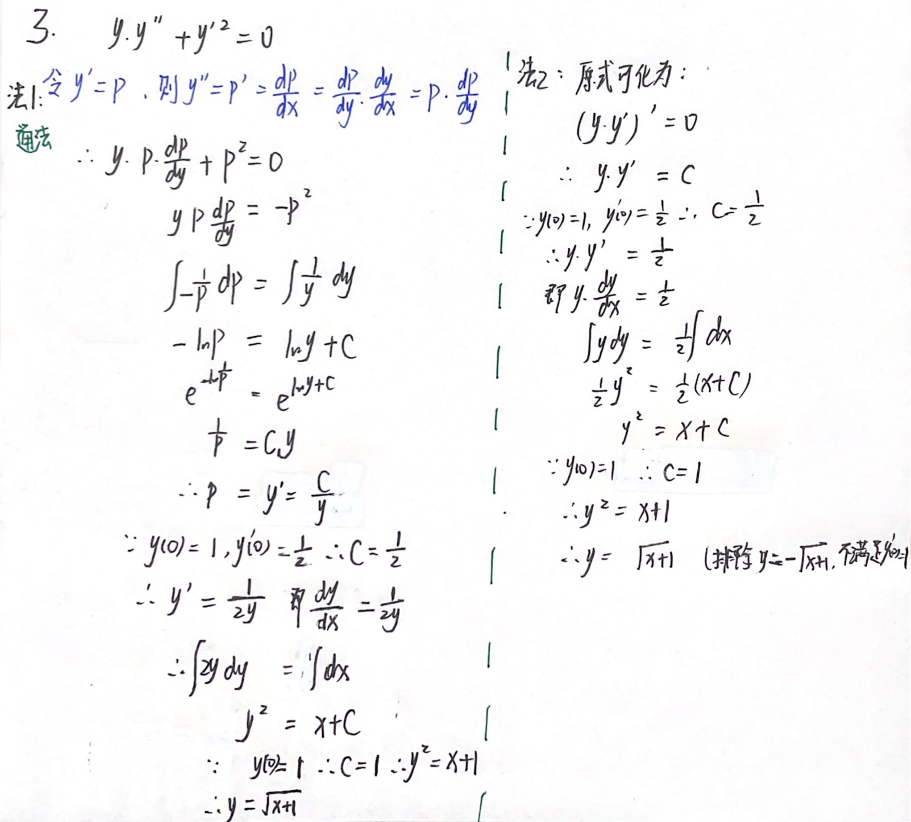 3. y·y″ + y′² = 0
法1: 令 y′ = p , 则 y″ = p′ = dp/dx = dp/dy · dy/dx = p · dp/dy
通法
∴ y · p · dp/dy + p² = 0
y p dp/dy = -p²
∫ -1/p dp = ∫ 1/y dy
-lnp = lny + C
= e^(lny+C)
1/p = C₁y
∴ p = y′ = C/y
∵ y(0) = 1, y′(0) = 1/2 ∴ C = 1/2
∴ y′ = 1/2y 即 dy/dx = 1/2y
∴ ∫2y dy = ∫dx
y² = x + C
∵ y(0) = 1 ∴ C = 1 ∴ y² = x+1
∴ y = √(x+1)
法2: 原式可化为:
(y·y′)′ = 0
∴ y·y′ = C
∵ y(0) = 1, y′(0) = 1/2 ∴ C = 1/2
∴ y·y′ = 1/2
即 y · dy/dx = 1/2
∫y dy = 1/2 ∫dx
1/2 y² = 1/2 (x+C)
y² = x + C
∵ y(0) = 1 ∴ C = 1
∴ y² = x+1
∴ y = √(x+1) (排除 y = -√(x+1), 不满足